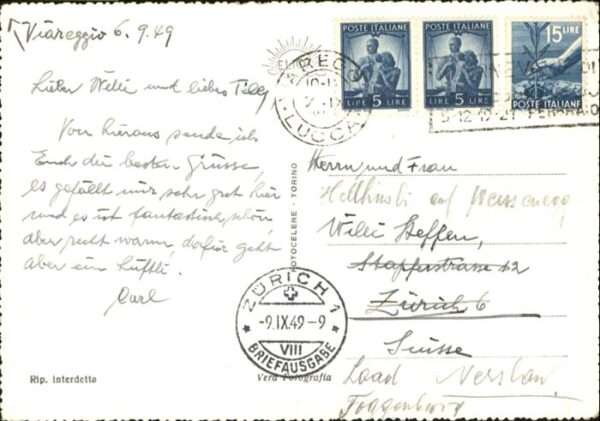 Viareggio 6.9.49
Lieber Willi und liebes Tilly
Von hieraus sende ich
Euch die besten Grüsse,
es gefällt mir sehr gut hier
und es ist fantastisch schön,
aber recht warm, dafür geht
aber ein Lüftli.
Carl
Rip. interdetta
FOTOCELERE - TORINO
Vera Fotografia
POSTE ITALIANE
LIRE 5 LIRE
POSTE ITALIANE
LIRE 5 LIRE
15 LIRE
POSTE ITALIANE
LUCCA
Herrn und Frau
auf
Willi Steffen,
Stapferstrasse 12
Zürich 6
Suisse
Toggenburg
ZÜRICH 1
-9.IX.49-9
VIII
BRIEFAUSGABE